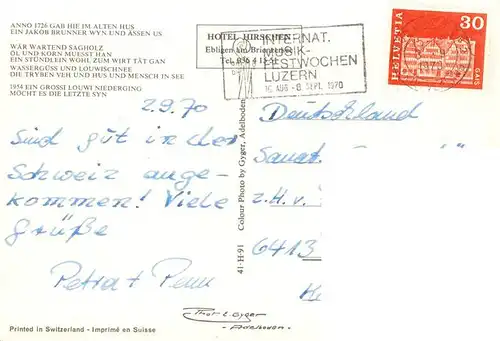 ANNO 1726 GAB HIE IM ALTEN HUS
EIN JAKOB BRUNNER WYN UND ÄSSEN US
WÄR WARTEND SAGHOLZ
ÖL UND KORN MUESST HAN
EIN STÜNDLEIN WOHL ZUM WIRT TÄT GAN
WASSERGÜSS UND LOUWISCHNEE
DIE TRYBEN VEH UND HUS UND MENSCH IN SEE
1854 EIN GROSSI LOUWI NIEDERGING
MÖCHT ES DIE LETZTE SYN
HOTEL HIRSCHEN
Ebligen am Brienzersee
Tel. 036 4
INTERNAT.
MUSIK-
FESTWOCHEN
LUZERN
16. AUG - 8. SEPT. 1970
HELVETIA
30
GAIS
2.9.70
Sind gut in der
Schweiz ange-
kommen! Viele
Grüße
Petra +
Colour Photo by Gyger, Adelboden
41-H-91
Deutschland
Sanat
z.H. v.
6413
Phot. E. Gyger
- Adelboden -
Printed in Switzerland - Imprimé en Suisse